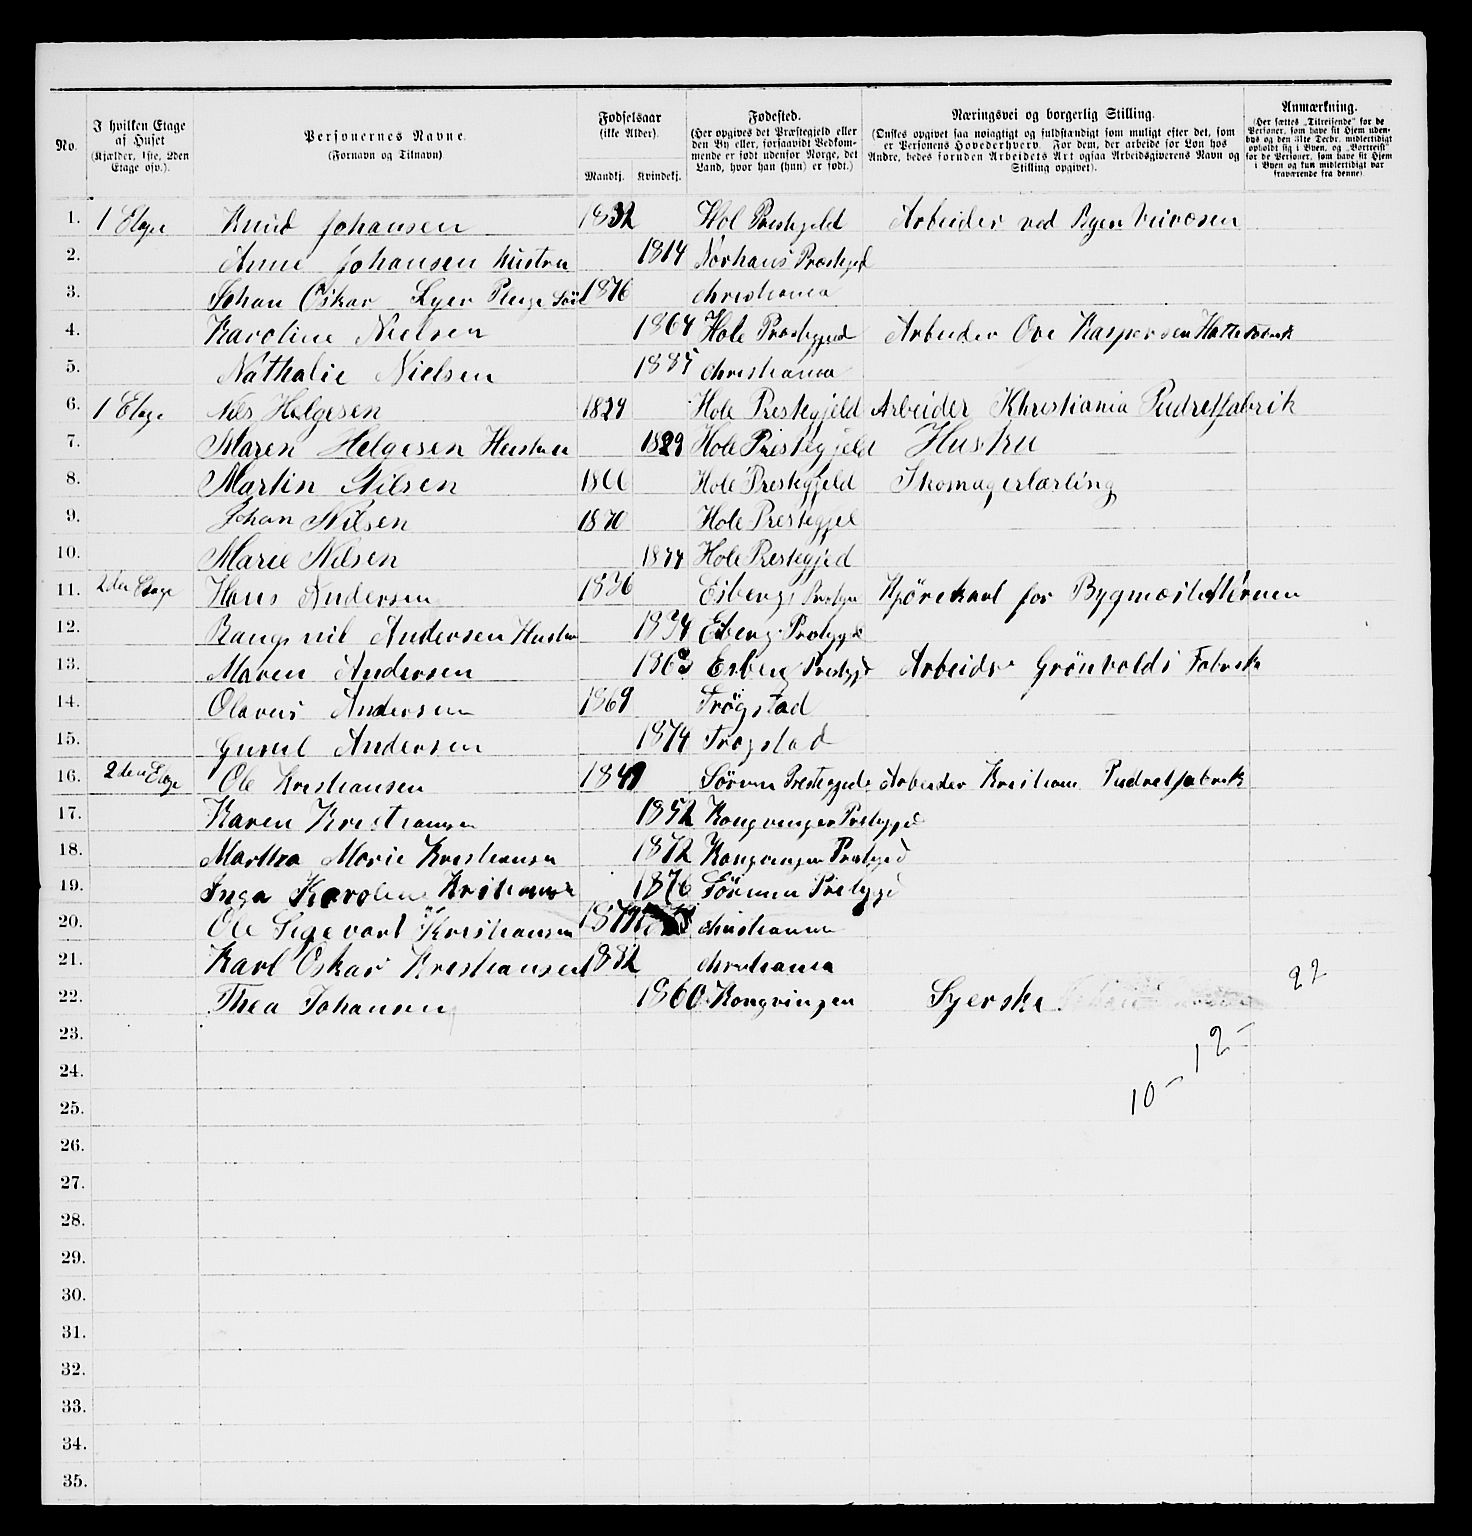 No.
I hvilken Etage af Huset (Kjælder, 1ste, 2den Etage osv.).
Personernes Navne. (Fornavn og Tilnavn)
Fødselsaar (ikke Alder). Mandkj. Kvindekj.
Fødested. (Her opgives det Præstegjeld eller den By eller, forsaavidt Vedkommende er født udenfor Norge, det Land, hvor han (hun) er født.)
Næringsvei og borgerlig Stilling. (Ønskes opgivet saa nøiagtigt og fuldstændigt som muligt efter det, som er Personens Hovederhverv. For dem, der arbeide for Løn hos Andre, bedes foruden Arbeidets Art ogsaa Arbeidsgiverens Navn og Stilling opgivet).
Anmærkning. (Her sættes „Tilreisende" for de Personer, som have sit Hjem udenbys og den 31te Decbr. midlertidigt opholdt sig i Byen, og „Bortreist" for de Personer, som have sit Hjem i Byen og kun midlertidigt var fraværende fra denne).
1. 1 Etage Knud Johansen 1832 Hol Prestegjeld Arbeider ved Byen
2. Anne Johansen Hustru 1814
3. Johan Oskar 1876 christiania
4. Karoline Nielsen 1864 Hole Prestegjed Arbeider Ove Kaspersen
5. Nathalie Nielsen christiania
6. 1 Etage Nils Helgesen 1829 Hole Prestegjeld Arbeider Khristiania Pudretfabrik
7. Maren Helgesen Hustru 1829 Hole Pristegjeld Hustru
8. Martin Nilsen 1866 Hole Prestegjeld Skomagerlærling
9. Johan Nilsen 1870 Hole Prestegjel
10. Marie Nilsen Hole Prestegjed
11. 2den Etage Hans Andersen 1836 Kjørekarl for Bygmester
12. Andersen Hustru 1834
13. Maren Andersen 1863 Arbeider Grönvolds Fabrik
14. Olavus Andersen 1869 Trögstad
15. Andersen 1874 Trogstad
16. 2den Etage Ole Kristiansen 1849 Arbeider Kristiania Pudretfabrik
17. Karen Kristiansen 1852
18. Martha Marie Kristiansen 1872
19. Inga Karoline Kristiansen 1876
20. Ole Sigevart Kristiansen christiania
21. Karl Oskar Kristiansen 1882 christiania
22. Thea Johansen 1860 Kongvingen Syerske
22
23.
12 -
24.
10 -
25.
26.
27.
28.
29.
30.
31.
32.
33.
34.
35.